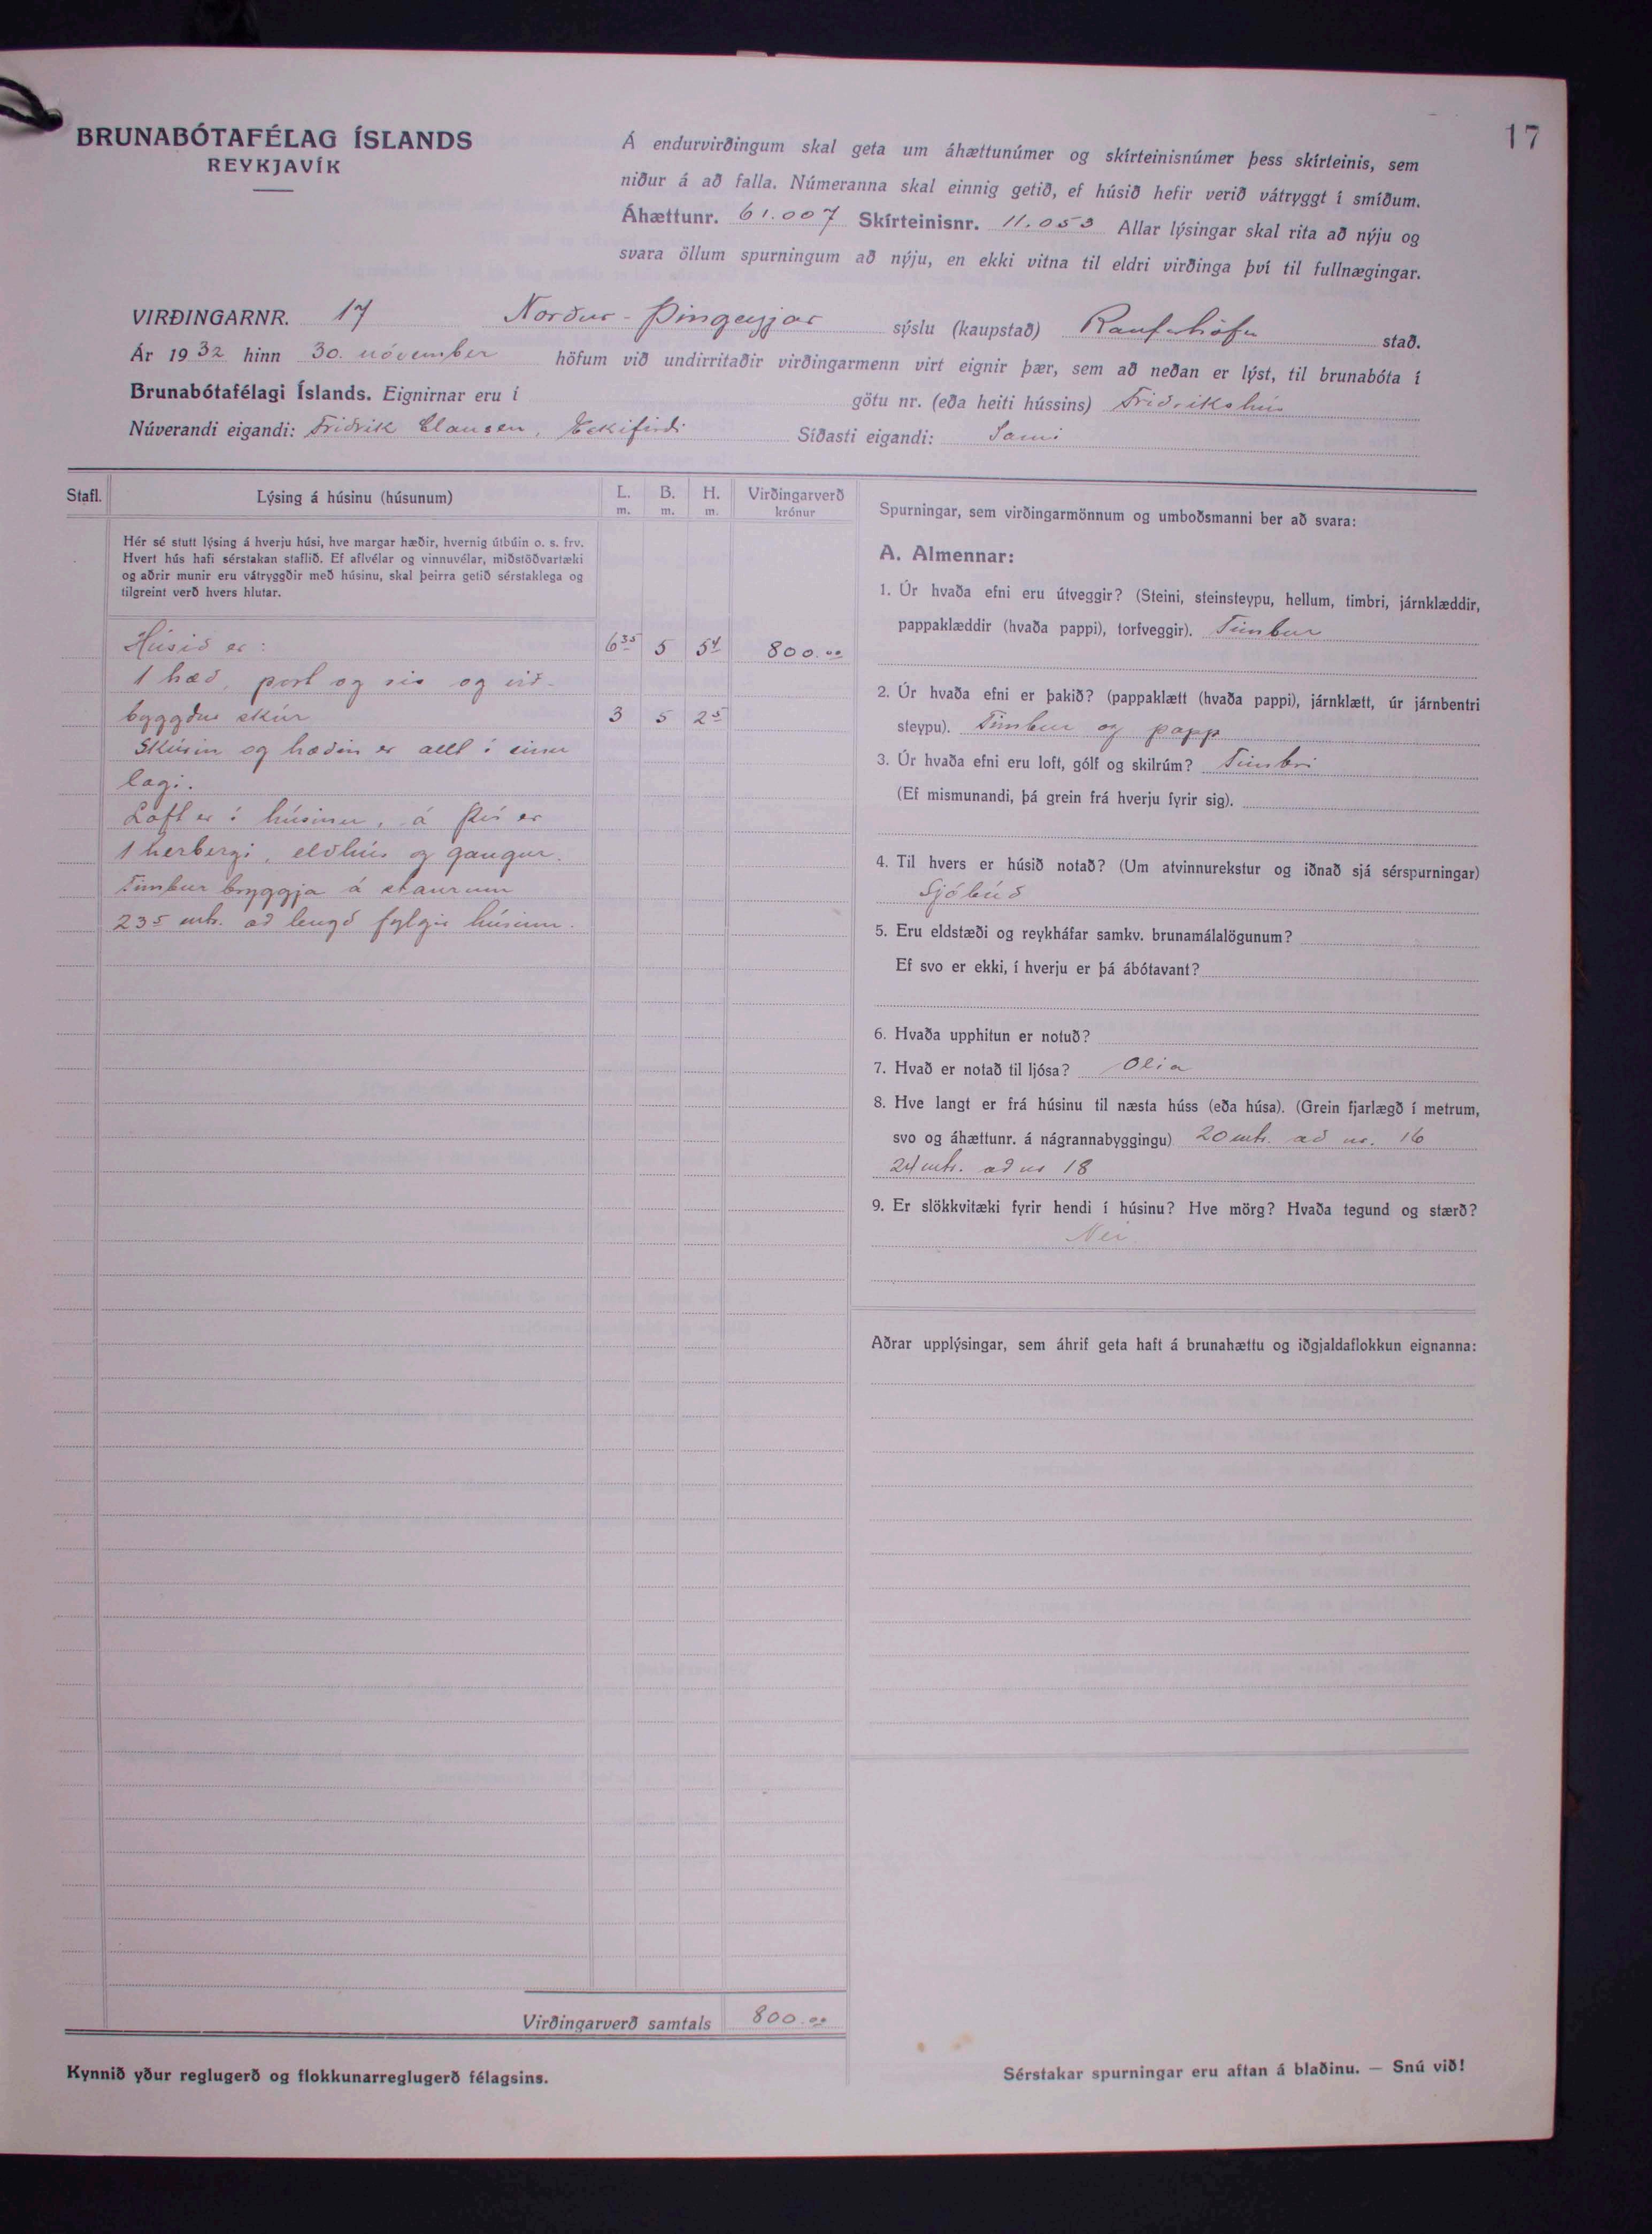 17
BRUNABÓTAFÉLAG ÍSLANDS
REYKJAVÍK
Á endurvirðingum skal geta um áhættunúmer og skírteinisnúmer þess skírteinis, sem
niður á að falla. Númeranna skal einnig getið, ef húsið hefir verið vátryggt í smíðum.
Áhættunr. 61.007 Skírteinisnr. 11.053 Allar lýsingar skal rita að nýju og
svara öllum spurningum að nýju, en ekki vitna til eldri virðinga því til fullnægingar.
VIRÐINGARNR. 17 Norður-Þingeyjar sýslu (kaupstað) Raufarhöfn stað.
Ár 1932 hinn 30. nóvember höfum við undirritaðir virðingarmenn virt eignir þær, sem að neðan er lýst, til brunabóta í
Brunabótafélagi Íslands. Eignirnar eru í götu nr. (eða heiti hússins) Friðrikshús
Núverandi eigandi: Friðrik Clausen, Eskifirði Síðasti eigandi: Sami
Stafl. Lýsing á húsinu (húsunum) L. m. B. m. H. m. Virðingarverð krónur
Hér sé stutt lýsing á hverju húsi, hve margar hæðir, hvernig útbúin o. s. frv.
Hvert hús hafi sérstakan staflið. Ef aflvélar og vinnuvélar, miðstöðvartæki
og aðrir munir eru vátryggðir með húsinu, skal þeirra getið sérstaklega og
tilgreint verð hvers hlutar.
Húsið er: 6 35 5 5 4 800.00
1 hæð, port og ris og við-
byggður skúr 3 5 2 5
Skúrin og hæðin er allt í einu
lagi.
Loft er í húsinu, á því er
1 herbergi, eldhús og gangur.
Timbur bryggja á staurum
23 5 mtr. að lengd fylgir húsinu.
Virðingarverð samtals 800.00
Kynnið yður reglugerð og flokkunarreglugerð félagsins.
Spurningar, sem virðingarmönnum og umboðsmanni ber að svara:
A. Almennar:
1. Úr hvaða efni eru útveggir? (Steini, steinsteypu, hellum, timbri, járnklæddir,
pappaklæddir (hvaða pappi), torfveggir). Timbur
2. Úr hvaða efni er þakið? (pappaklætt (hvaða pappi), járnklætt, úr járnbentri
steypu). Timbur og papp
3. Úr hvaða efni eru loft, gólf og skilrúm? Timbri
(Ef mismunandi, þá grein frá hverju fyrir sig).
4. Til hvers er húsið notað? (Um atvinnurekstur og iðnað sjá sérspurningar)
Sjóbúð
5. Eru eldstæði og reykháfar samkv. brunamálalögunum?
Ef svo er ekki, í hverju er þá ábótavant?
6. Hvaða upphitun er notuð?
7. Hvað er notað til ljósa? Olia
8. Hve langt er frá húsinu til næsta húss (eða húsa). (Grein fjarlægð í metrum,
svo og áhættunr. á nágrannabyggingu) 20 mtr. að nr. 16
24 mtr. að nr 18
9. Er slökkvitæki fyrir hendi í húsinu? Hve mörg? Hvaða tegund og stærð?
Nei
Aðrar upplýsingar, sem áhrif geta haft á brunahættu og iðgjaldaflokkun eignanna:
Sérstakar spurningar eru aftan á blaðinu. — Snú við!